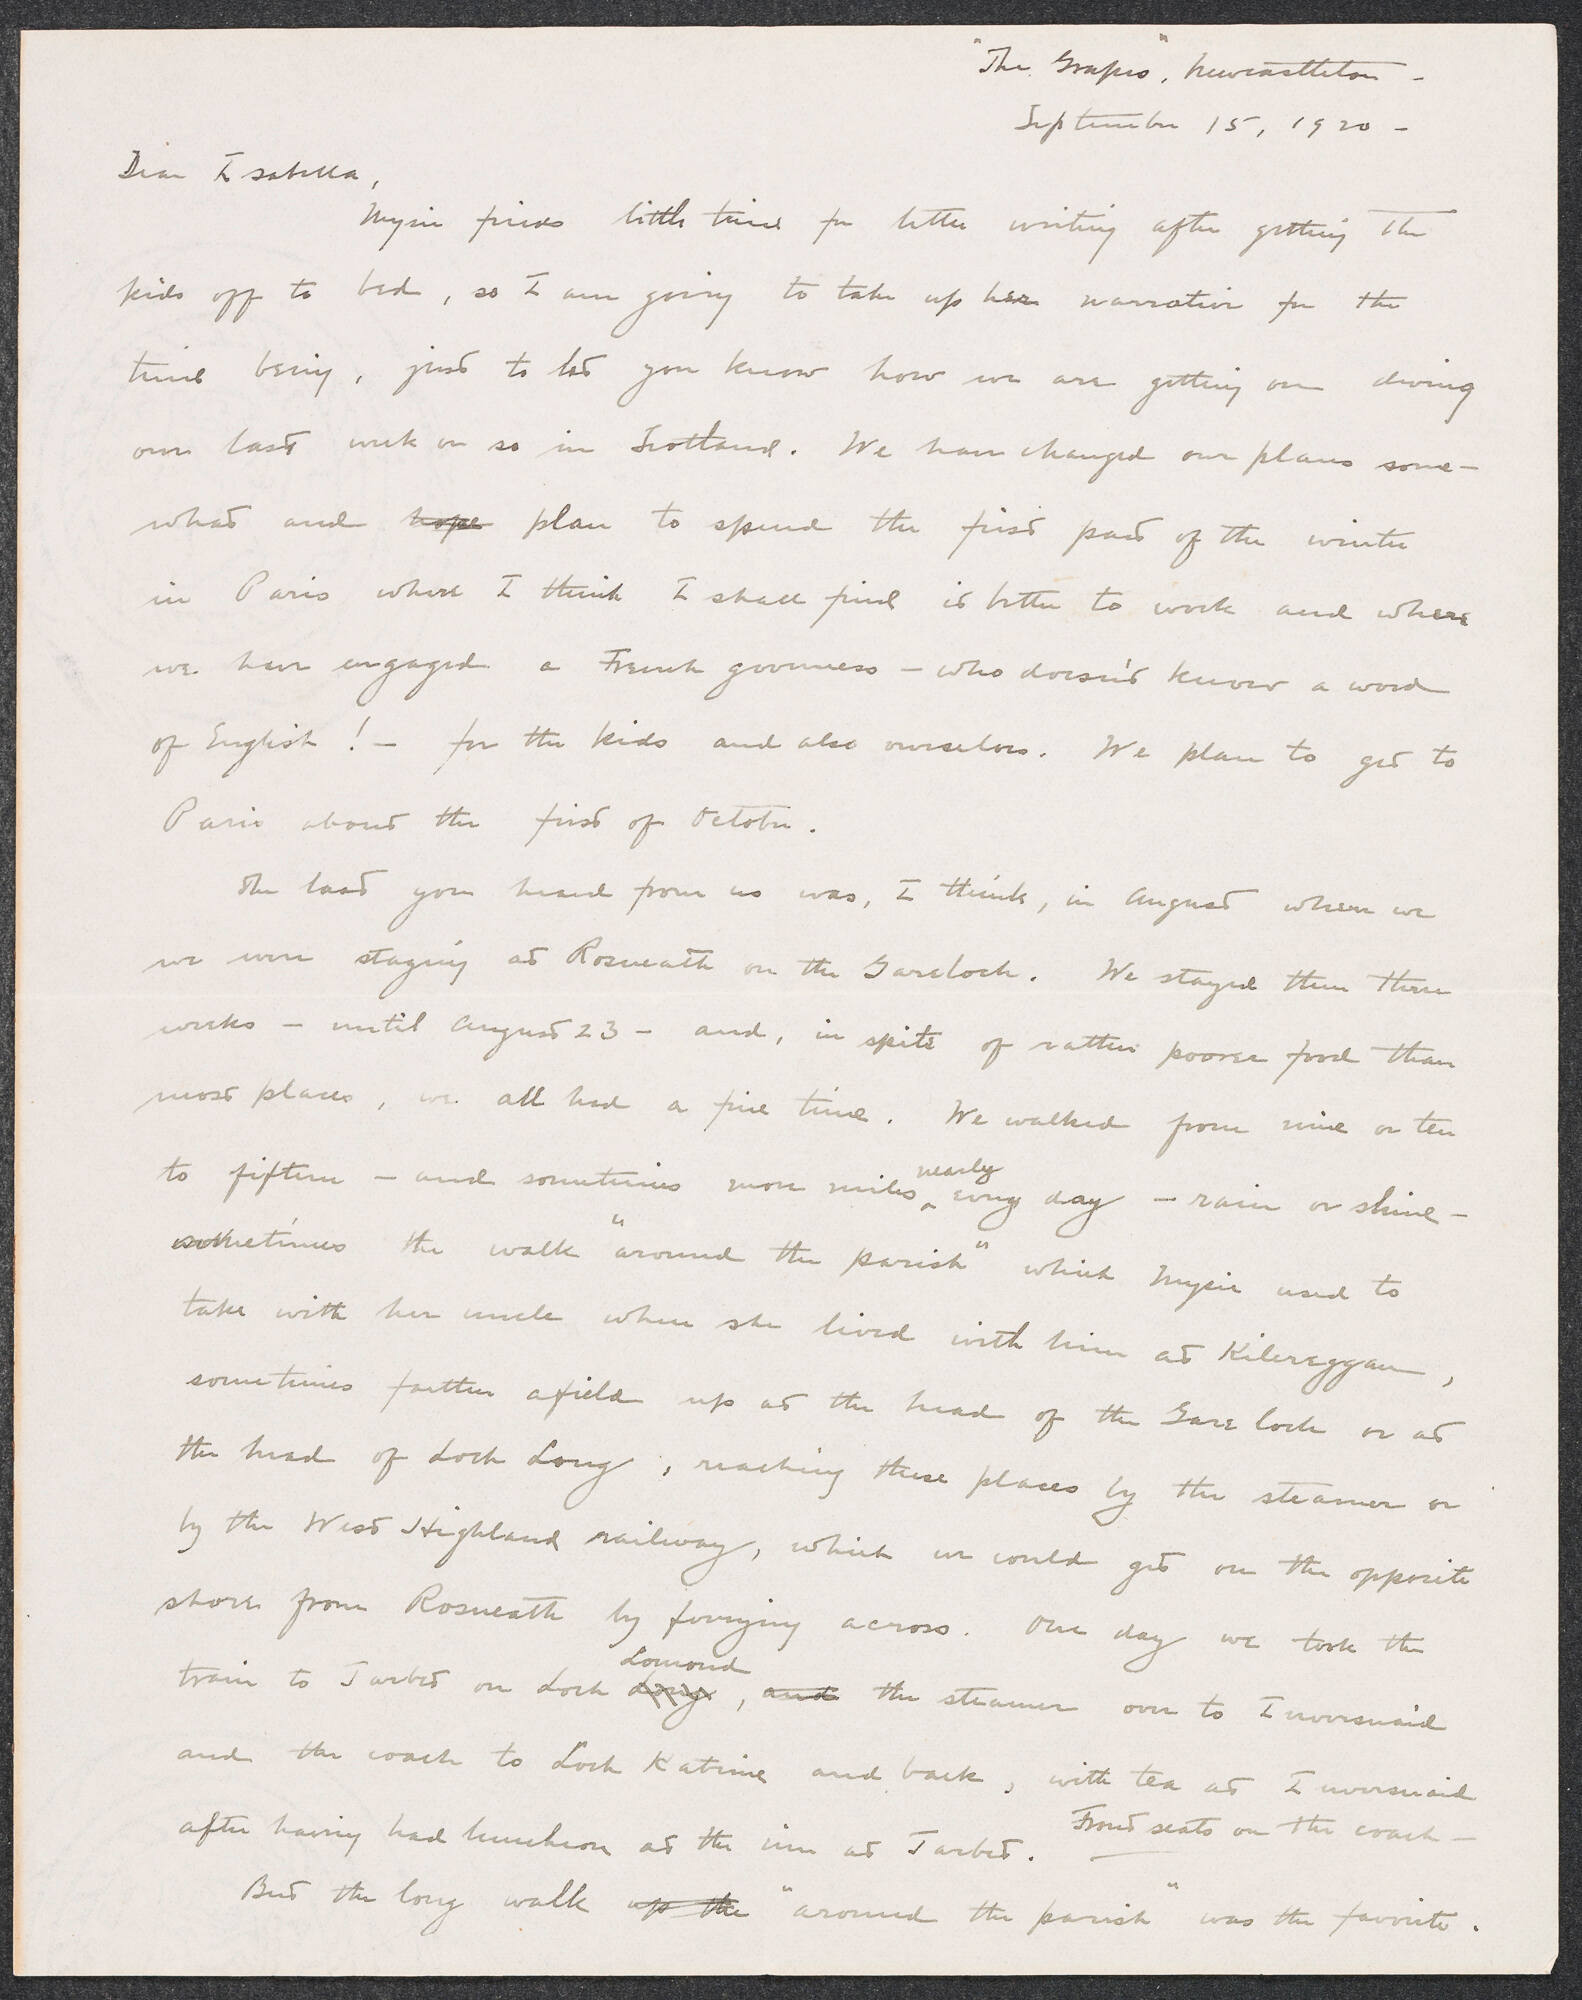 "The Grapes", Newcastleton -
September 15, 1920 -
Dear Isabella,
Mysie finds little time for letter writing after getting the
kids off to bed, so I am going to take up her narrative for the
time being, just to let you know how we are getting on during
our last week or so in Scotland. We have changed our plans some-
what and hope plan to spend the first part of the winter
in Paris where I think I shall find it better to work and where
we have engaged a French governess - who doesn't know a word
of English! - for the kids and also ourselves. We plan to get to
Paris about the first of October.
The last you heard from us was, I think, in August when we
we were staying at Rosneath on the Gareloch. We stayed there three
weeks - until August 23 - and, in spite of rather poorer food than
most places, we all had a fine time. We walked from nine or ten
to fifteen - and sometimes more miles nearly every day - rain or shine -
sometimes the walk "around the parish" which Mysie used to
take with her uncle when she lived with him at Kilcreggan,
sometimes farther afield up at the head of the Gare loch or at
the head of Loch Long, reaching these places by the steamer or
by the West Highland railway, which we could get on the opposite
shore from Rosneath by ferrying across. One day we took the
train to Tarbet on Loch Long Lomond, and the steamer over to Inversnaid
and the coach to Loch Katrine and back, with tea at Inversnaid
after having had luncheon at the inn at Tarbet. Front seats on the coach -
But the long walk up the "around the parish" was the favorite.